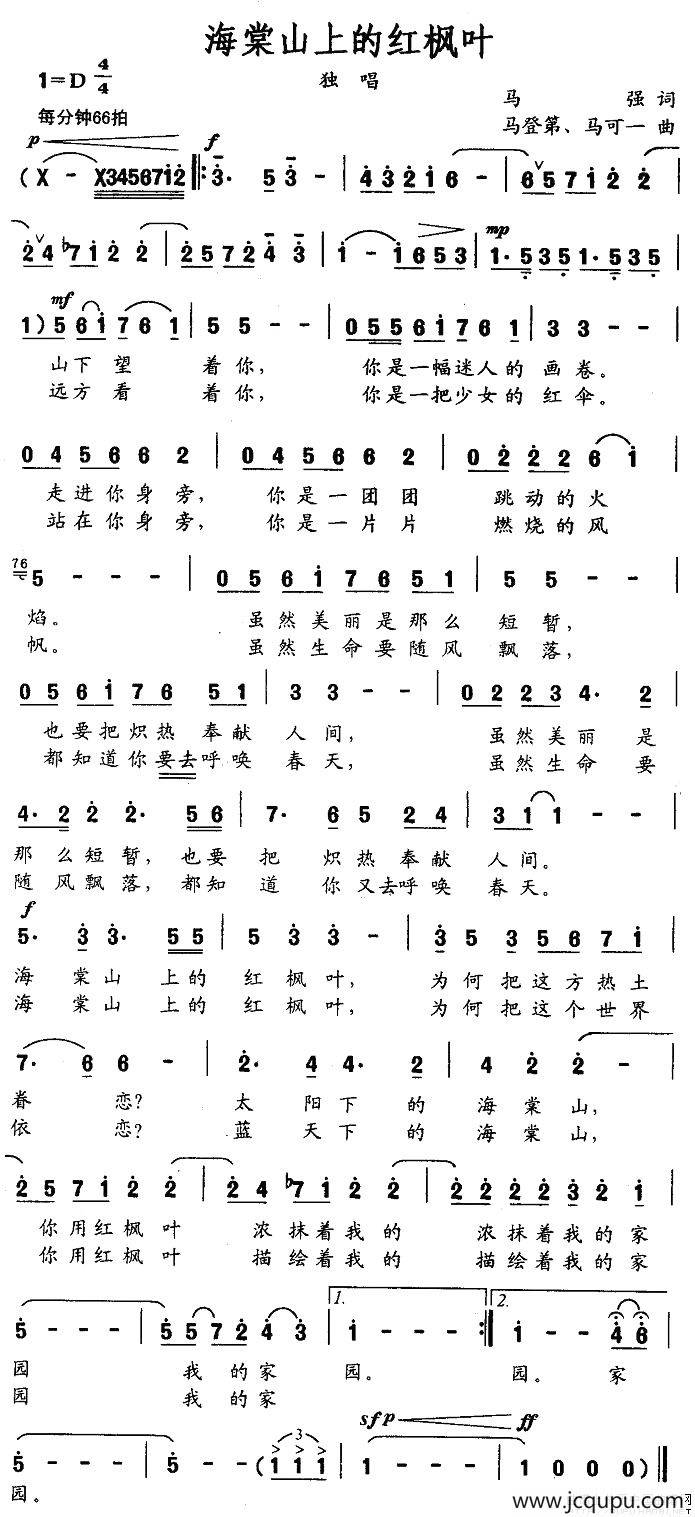 海棠山上的红枫叶
1=D 4/4
独 唱
每分钟66拍
马 强 词
马登第、马可一 曲
p f
(X - X34567i2 ‖: 3· 5 3 - | 4 3 2 i 6 - | 6 5 7 i 2 2 |
2 4 ♭7 i 2 2 | 2 5 7 2 4 3 | i - i 6 5 3 | 1· 5 3 5 1· 5 3 5 |
mp
mf
1) 5 6 i 7 6 1 | 5 5 - - | 0 5 5 6 i 7 6 1 | 3 3 - - |
山下望 着你, 你是一幅迷人的 画卷。
远方看 着你, 你是一把少女的 红伞。
0 4 5 6 6 2 | 0 4 5 6 6 2 | 0 2 2 2 6 i |
走进你身旁, 你是一团团 跳动的火
站在你身旁, 你是一片片 燃烧的风
76 5 - - - | 0 5 6 i 7 6 5 1 | 5 5 - - |
焰。 虽然美丽是那么 短暂,
帆。 虽然生命要随风 飘落,
0 5 6 i 7 6 5 1 | 3 3 - - | 0 2 2 3 4· 2 |
也要把炽热奉献 人间, 虽然美丽 是
都知道你要去呼唤 春天, 虽然生命 要
4· 2 2 2· 5 6 | 7· 6 5 2 4 | 3 1 1 - - |
那么短暂,也要 把 炽热奉献 人间。
随风飘落,都知 道 你又去呼唤 春天。
f
5· 3 3· 5 5 | 5 3 3 - | 3 5 3 5 6 7 i |
海 棠山 上的 红枫叶, 为何把这方热土
海 棠山 上的 红枫叶, 为何把这个世界
7· 6 6 - | 2· 4 4· 2 | 4 2 2 - |
眷 恋? 太 阳下 的 海棠山,
依 恋? 蓝 天下 的 海棠山,
2 5 7 i 2 2 | 2 4 ♭7 i 2 2 | 2 2 2 2 3 2 i |
你用红枫叶 浓抹着我的 浓抹着我的家
你用红枫叶 描绘着我的 描绘着我的家
1. 2.
5 - - - | 5 5 7 2 4 3 | i - - - :‖ i - - 4 6 |
园 我的家 园。 园。 家
园 我的家
sfp ff
3
5 - - - | 5 - - (i i i | 1 - - - | 1 0 0 0) ‖
园。
www.jcqupu.com